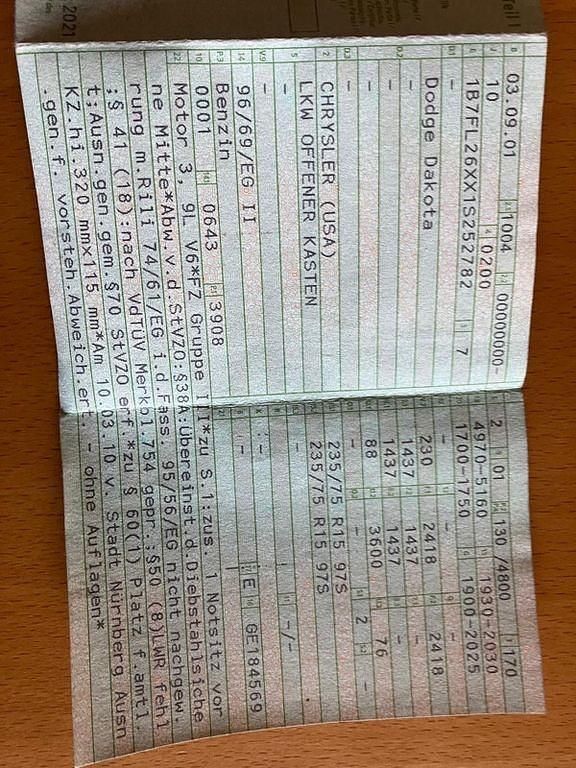 Teil I
2021
B 03.09.01 2.1 1004 2.2 00000000-
J 10 4 0200
E 1B7FL26XX1S252782 3 7
D.1 -
Dodge Dakota
D.2 -
-
-
D.3 -
2 CHRYSLER (USA)
5 LKW OFFENER KASTEN
-
V.9 -
14 96/69/EG II
P.3 Benzin
10 0001 14.1 0643 P.1 3908
22 Motor 3, 9L V6*FZ Gruppe III*zu S.1:zus. 1 Notsitz vor
ne Mitte*Abw.v.d.StVZO:§38A:Übereinst.d.Diebstahlsiche
rung m.Rili 74/61/EG i.d.Fass. 95/56/EG nicht nachgew.
;§ 41 (18):nach VdTÜV Merkbl.754 gepr.;§50 (8)LWR fehl
t;Ausn.gen.gem.§70 StVZO erf.*zu § 60(1) Platz f.amtl.
KZ.hi.320 mmx115 mm*Am 10.03.10 v. Stadt Nürnberg Ausn
.gen.f. vorsteh.Abweich.ert. - ohne Auflagen*
2 01 130 /4800 170
4970-5160 1930-2030
1700-1750 1900-2025
- - -
230 2418 2418
1437 1437 -
1437 1437 -
88 3600 76
- - 2 -
235/75 R15 97S
235/75 R15 97S
- -/-
:- -
- E GE184569